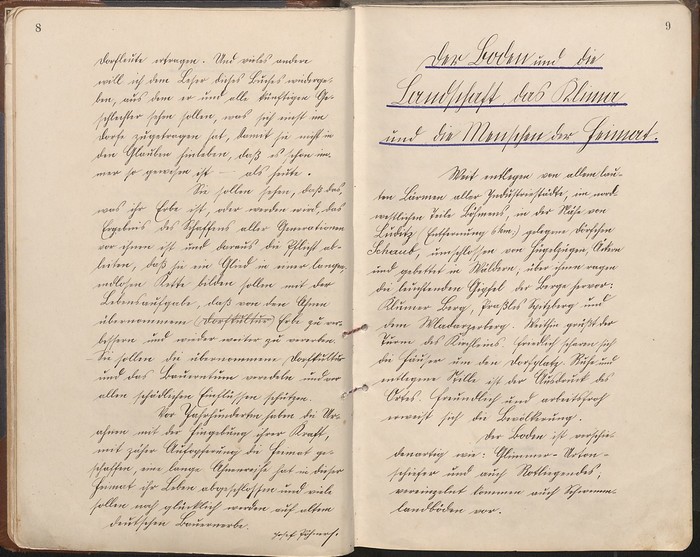 8
Dorfleute ertragen. Und vieles andere
will ich dem Leser dieses Buches wiederge-
ben, aus dem er und alle künftigen Ge-
schlechter sehen sollen, was sich einst im
Dorfe zugetragen hat, damit sie nicht in
den Glauben hinleben, daß es schon im-
mer so gewesen ist — als heute.
Sie sollen sehen, daß das
was ihr Erbe ist, oder werden wird, das
Ergebnis des Schaffens aller Generationen
vor ihnen ist und daraus die Pflicht ab-
leiten, daß sie ein Glied in einer langen
endlosen Kette bilden sollen mit der
Lebensaufgabe, das von den Ahnen
übernommene (Dorfkultur) Erbe zu ver-
bessern und wieder weiter zu vererben.
Sie sollen die übernommene Dorfkultur
und das Bauerntum veredeln und vor
allen schädlichen Einflüssen schützen.
Vor Jahrhunderten haben die Ur-
ahnen mit der Hingebung ihrer Kraft,
mit zäher Aufopferung die Heimat ge-
schaffen, eine lange Ahnenreihe hat in dieser
Heimat ihr Leben abgeschlossen und viele
sollen noch glücklich werden auf altem
deutschen Bauernerbe.
Josef
9
Der Boden und die
Landschaft, das Klima
und die Menschen der Heimat.
Weit entlegen von allem lau-
ten Lärmen aller Industriestädte, im nord-
westlichen Teile Böhmens, in der Nähe von
Luditz (Entfernung 6 km) gelegene Dörfchen
umschlossen von Hügelzügen, Äckern
und gebettet in Wäldern, über ihnen ragen
die leuchtenden Gipfel der Berge hervor:
Klumer Berg, Spitzberg und
dem Wladarzerberg. Weithin grüßt der
Turm des Kirchleins. Friedlich scharen sich
die Häuser um den Dorfplatz. Ruhe und
entlegene Stille ist der Ausdruck des
Ortes. Freundlich und arbeitsfroh
erweist sich die Bevölkerung.
Der Boden ist verschie-
denartig wie: Glimmer- Urton-
schiefer und auch Rotliegendes,
vereinzelt kommen auch Schwemm-
landböden vor.